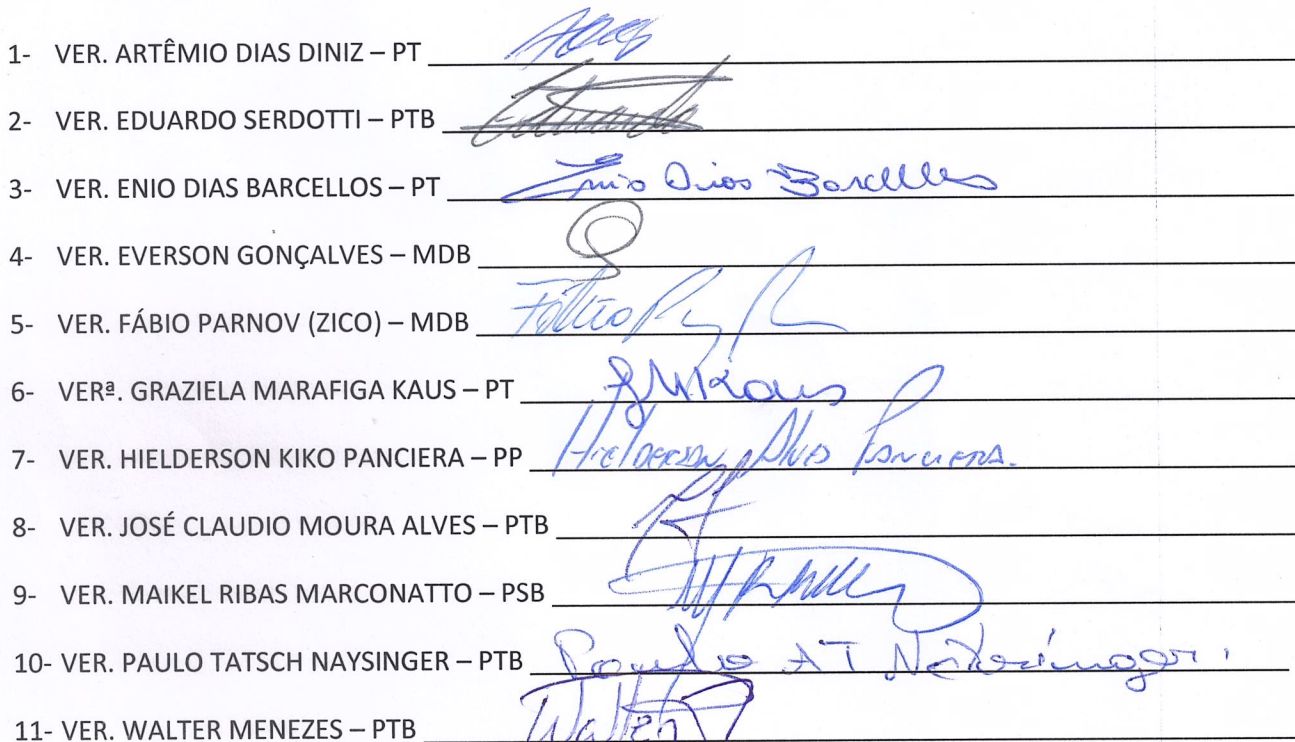 1- VER. ARTÊMIO DIAS DINIZ – PT
2- VER. EDUARDO SERDOTTI – PTB Eduardo
3- VER. ENIO DIAS BARCELLOS – PT Enio Dias Barcellos
4- VER. EVERSON GONÇALVES – MDB
5- VER. FÁBIO PARNOV (ZICO) – MDB Fábio
6- VERª. GRAZIELA MARAFIGA KAUS – PT GMKaus
7- VER. HIELDERSON KIKO PANCIERA – PP Hielderson Alves Panciera.
8- VER. JOSÉ CLAUDIO MOURA ALVES – PTB
9- VER. MAIKEL RIBAS MARCONATTO – PSB
10- VER. PAULO TATSCH NAYSINGER – PTB
11- VER. WALTER MENEZES – PTB Walter